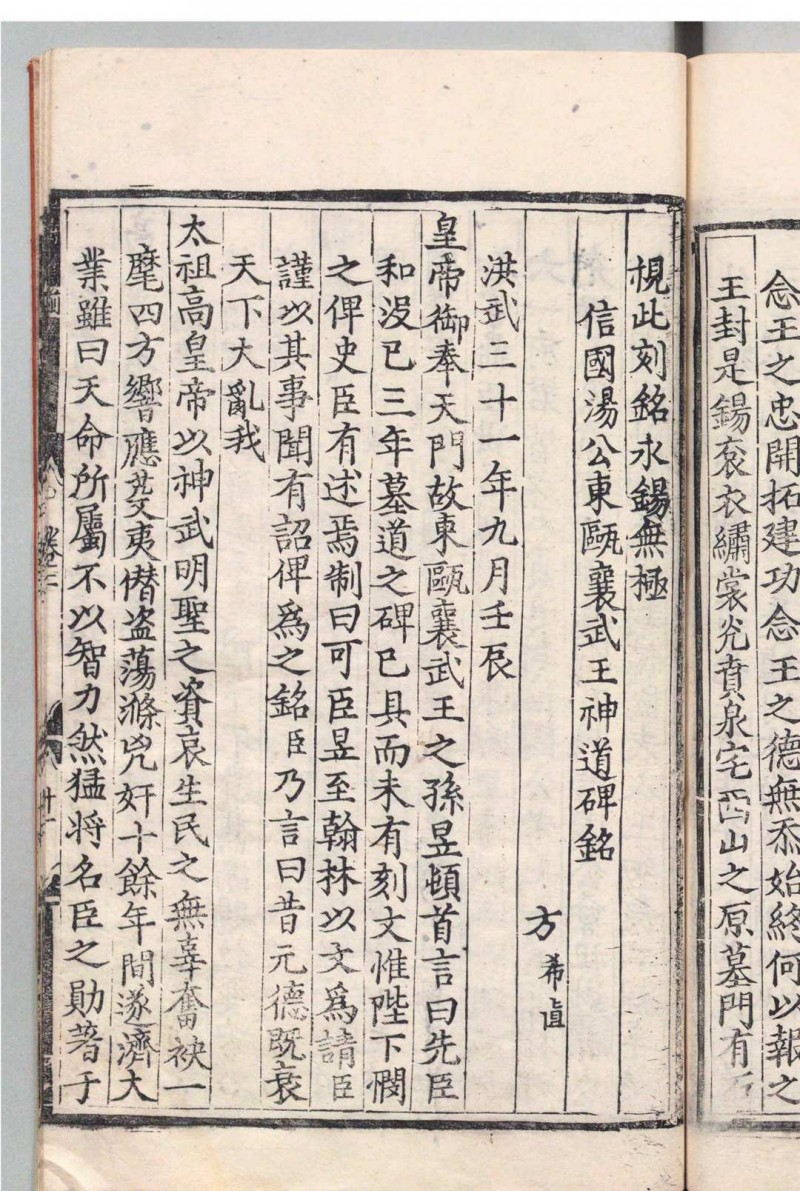 念王之忠開拓建功念王之德無忝始終何以報之
王封是錫衮衣繡裳光賁泉宅西山之原墓門有石
視此刻銘永錫無極
信國湯公東甌襄武王神道碑銘
方希直
洪武三十一年九月壬辰
皇帝御奉天門故東甌襄武王之孫昱頓首言曰先臣
和沒已三年墓道之碑已具而未有刻文惟陛下憫
之俾史臣有述焉制曰可臣昱至翰林以文爲請臣
謹以其事聞有詔俾爲之銘臣乃言曰昔元德既衰
天下大亂我
太祖高皇帝以神武明聖之資哀生民之無辜奮袂一
麾四方響應芟夷僭盗蕩滌兇奸十餘年間遂濟大
業雖曰天命所屬不以智力然猛將名臣之勛著于
卷之二